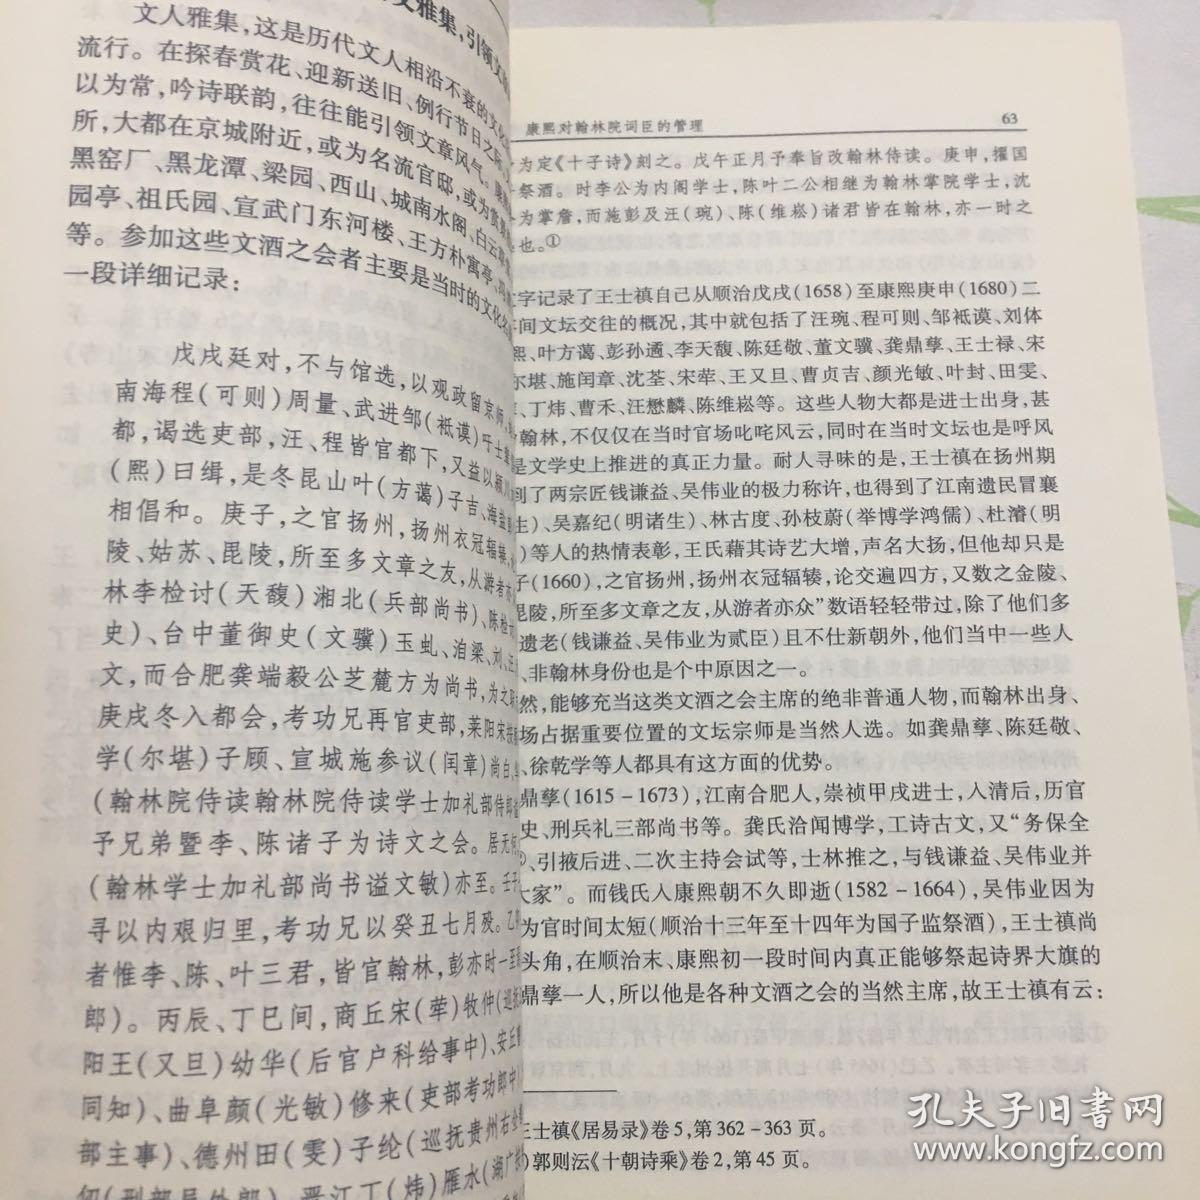 文雅集,引领文
文人雅集,这是历代文人相沿不衰的文化
流行。在探春赏花、迎新送旧、例行节日之际
以为常,吟诗联韵,往往能引领文章风气。
所,大都在京城附近,或为名流官邸,或为赏
黑窑厂、黑龙潭、梁园、西山、城南水阁、白云
园亭、祖氏园、宣武门东河楼、王方朴寓亭、
等。参加这些文酒之会者主要是当时的文化名
一段详细记录:
戊戌廷对,不与馆选,以观政留京师
南海程(可则)周量、武进邹(祗谟)于士
都,谒选吏部,汪、程皆官都下,又益以颍
(熙)曰缉,是冬昆山叶(方蔼)子吉、海盐
相倡和。庚子,之官扬州,扬州衣冠辐辏,
陵、姑苏、毘陵,所至多文章之友,从游者亦
林李检讨(天馥)湘北(兵部尚书)、陈检
史)、台中董御史(文骥)玉虬、洎梁、刘、汪
文,而合肥龚端毅公芝麓方为尚书,为之
庚戌冬入都会,考功兄再官吏部,莱阳宋
学(尔堪)子顾、宣城施参议(闰章)尚白、
(翰林院侍读翰林院侍读学士加礼部侍郎
予兄弟暨李、陈诸子为诗文之会。居无
(翰林学士加礼部尚书谥文敏)亦至。壬子
寻以内艰归里,考功兄以癸丑七月殁。乙
者惟李、陈、叶三君,皆官翰林,彭亦时一至
郎)。丙辰、丁巳间,商丘宋(荦)牧仲(巡
阳王(又旦)幼华(后官户科给事中)、安丘
同知)、曲阜颜(光敏)修来(吏部考功郎中
部主事)、德州田(雯)子纶(巡抚贵州右佥
何(刑部员外郎)、晋江丁(炜)雁水(湖广
康熙对翰林院词臣的管理 63
为定《十子诗》刻之。戊午正月予奉旨改翰林侍读。庚申,擢国
祭酒。时李公为内阁学士,陈叶二公相继为翰林掌院学士,沈
为掌詹,而施彭及汪(琬)、陈(维崧)诸君皆在翰林,亦一时之
也。①
字记录了王士禛自己从顺治戊戌(1658)至康熙庚申(1680)二
间文坛交往的概况,其中就包括了汪琬、程可则、邹祗谟、刘体
熙、叶方蔼、彭孙遹、李天馥、陈廷敬、董文骥、龚鼎孳、王士禄、宋
尔堪、施闰章、沈荃、宋荦、王又旦、曹贞吉、颜光敏、叶封、田雯、
、丁炜、曹禾、汪懋麟、陈维崧等。这些人物大都是进士出身,甚
翰林,不仅仅在当时官场叱咤风云,同时在当时文坛也是呼风
是文学史上推进的真正力量。耐人寻味的是,王士禛在扬州期
到了两宗匠钱谦益、吴伟业的极力称许,也得到了江南遗民冒襄
生)、吴嘉纪(明诸生)、林古度、孙枝蔚(举博学鸿儒)、杜濬(明
)等人的热情表彰,王氏藉其诗艺大增,声名大扬,但他却只是
子(1660),之官扬州,扬州衣冠辐辏,论交遍四方,又数之金陵、
毘陵,所至多文章之友,从游者亦众”数语轻轻带过,除了他们多
遗老(钱谦益、吴伟业为贰臣)且不仕新朝外,他们当中一些人
、非翰林身份也是个中原因之一。
然,能够充当这类文酒之会主席的绝非普通人物,而翰林出身、
场占据重要位置的文坛宗师是当然人选。如龚鼎孳、陈廷敬、
、徐乾学等人都具有这方面的优势。
鼎孳(1615－1673),江南合肥人,崇祯甲戌进士,入清后,历官
史、刑兵礼三部尚书等。龚氏洽闻博学,工诗古文,又“务保全
②、引掖后进、二次主持会试等,士林推之,与钱谦益、吴伟业并
大家”。而钱氏人康熙朝不久即逝(1582－1664),吴伟业因为
为官时间太短(顺治十三年至十四年为国子监祭酒),王士禛尚
头角,在顺治末、康熙初一段时间内真正能够祭起诗界大旗的
鼎孳一人,所以他是各种文酒之会的当然主席,故王士禛有云:
王士禛《居易录》卷5,第362－363页。
)郭则沄《十朝诗乘》卷2,第45页。
孔夫子旧书网
www.kongfz.com